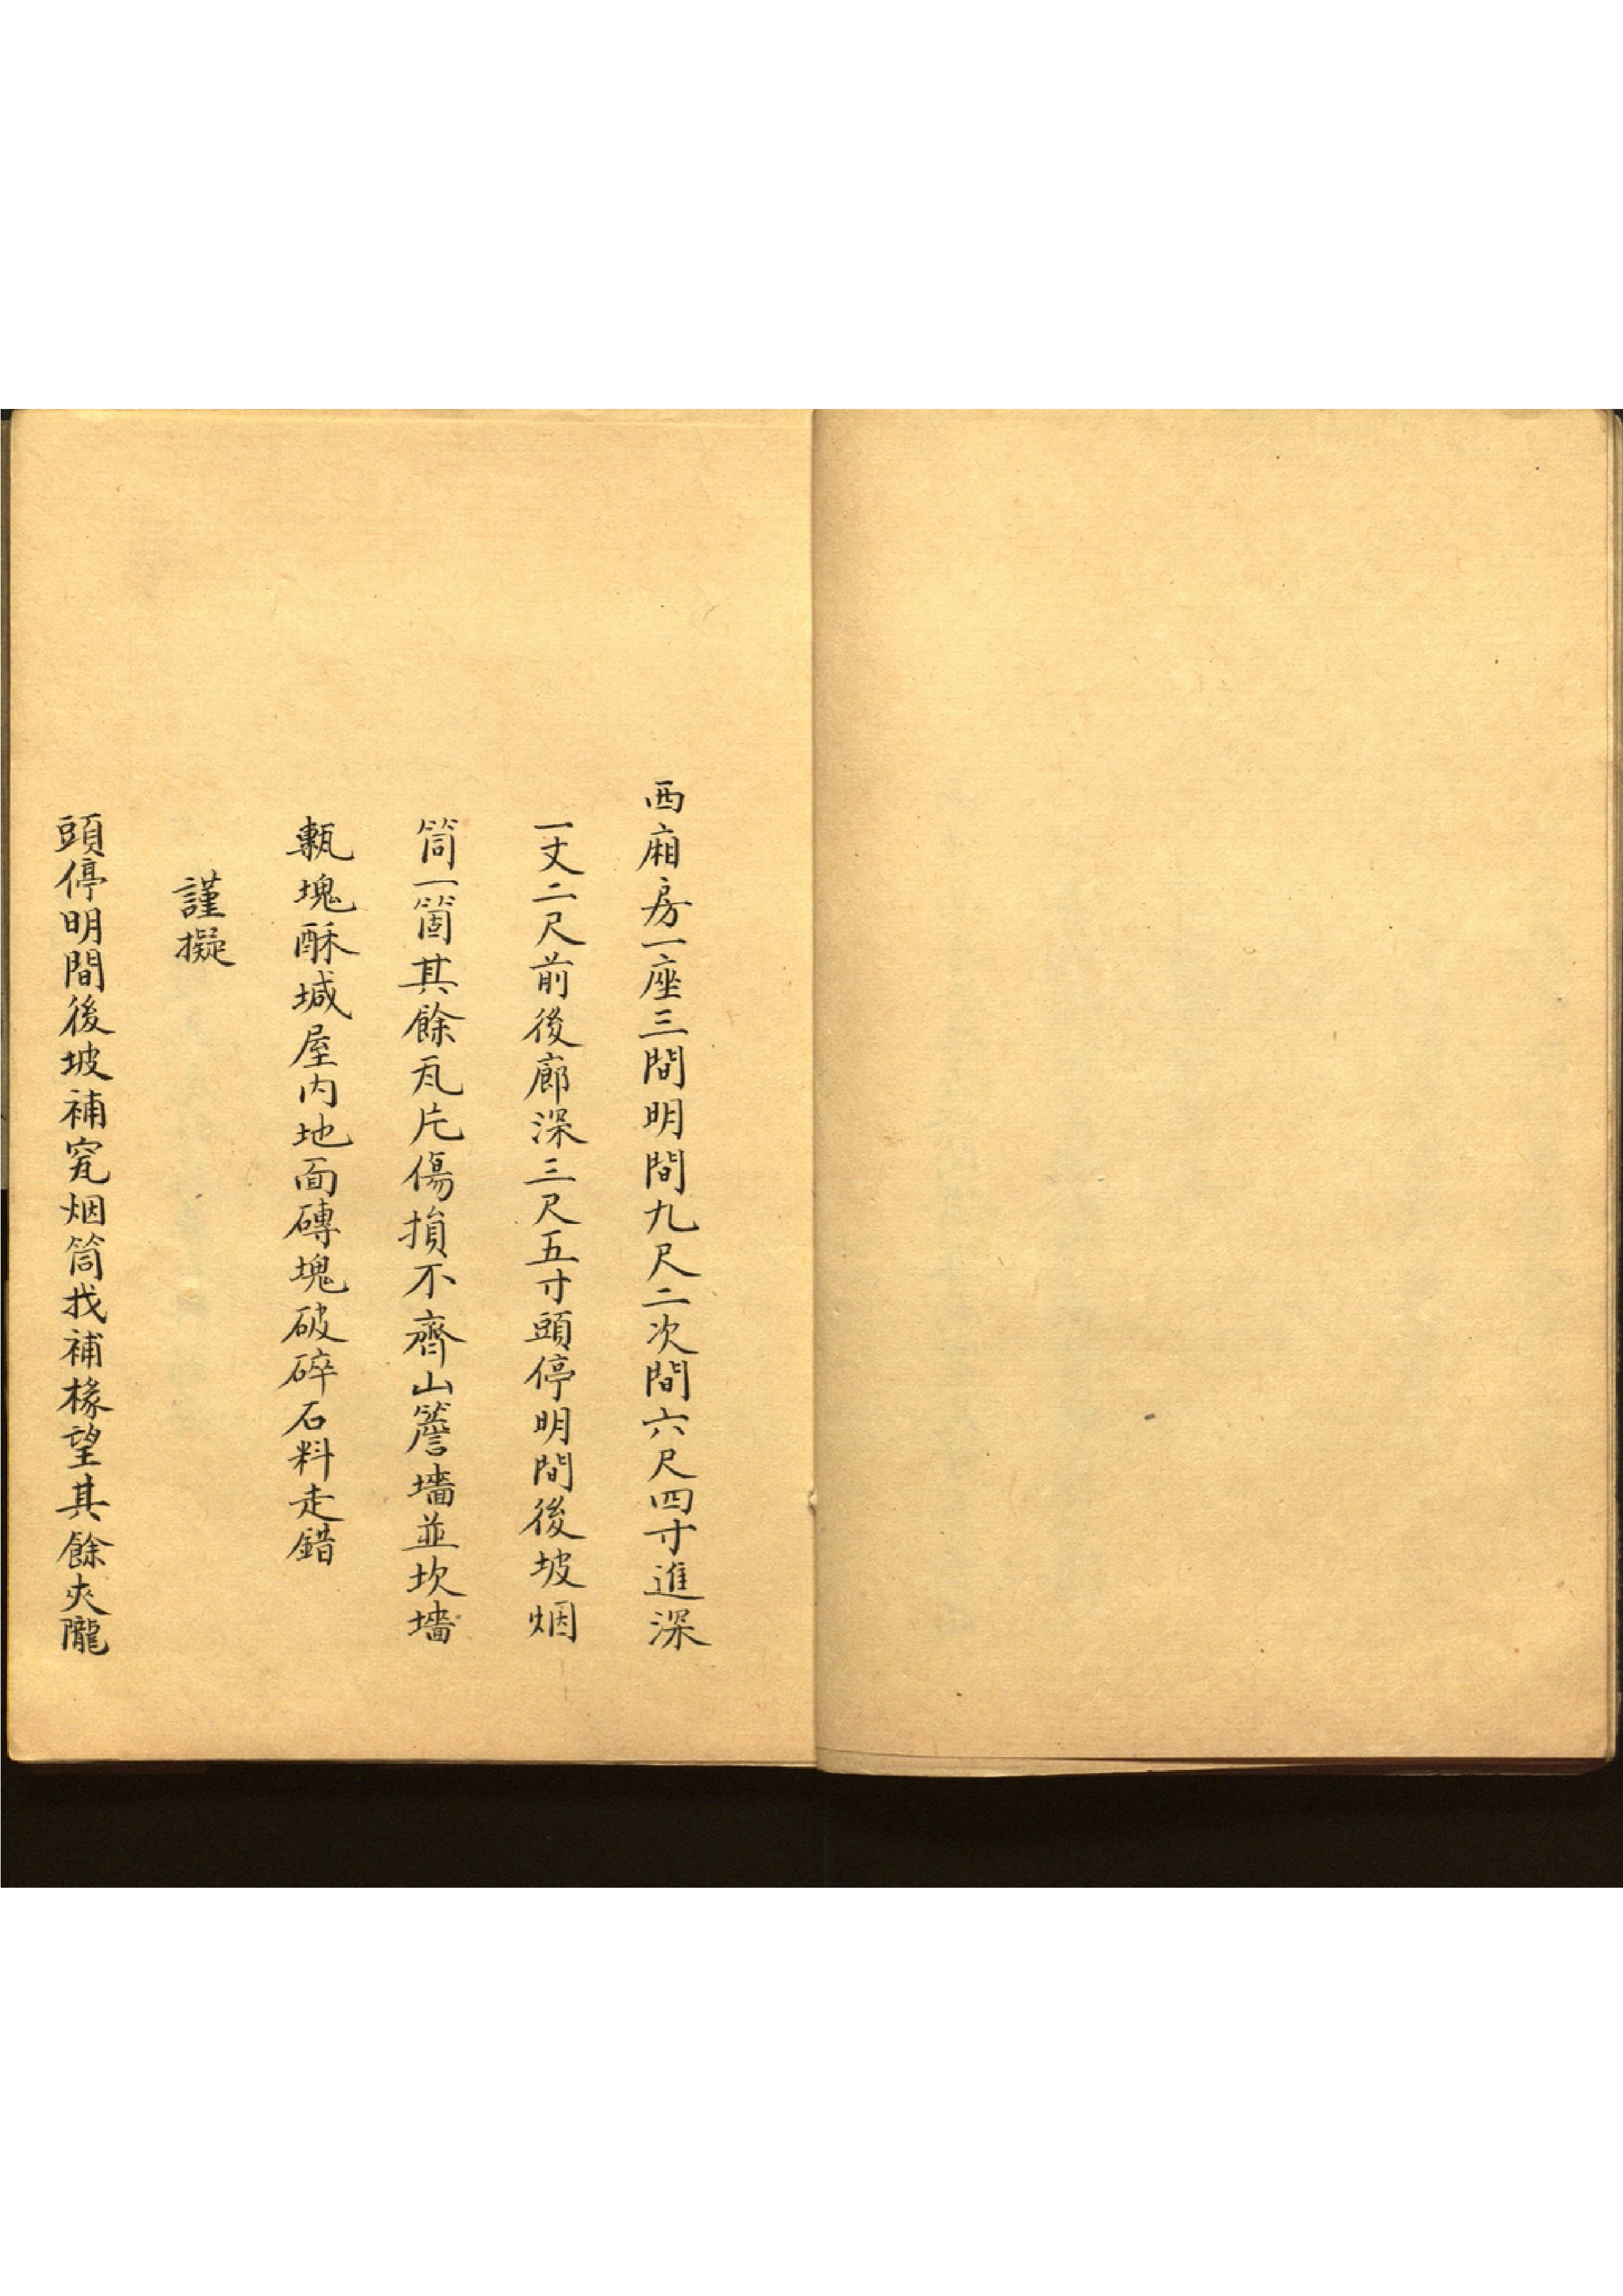 西廂房一座三間明間九尺二次間六尺四寸進深
一丈二尺前後廊深三尺五寸頭停明間後坡烟
筒一箇其餘瓦片傷損不齊山簷墻並坎墻
塊酥堿屋内地面磚塊破碎石料走錯
謹擬
頭停明間後坡補窊烟筒找補椽望其餘夾隴